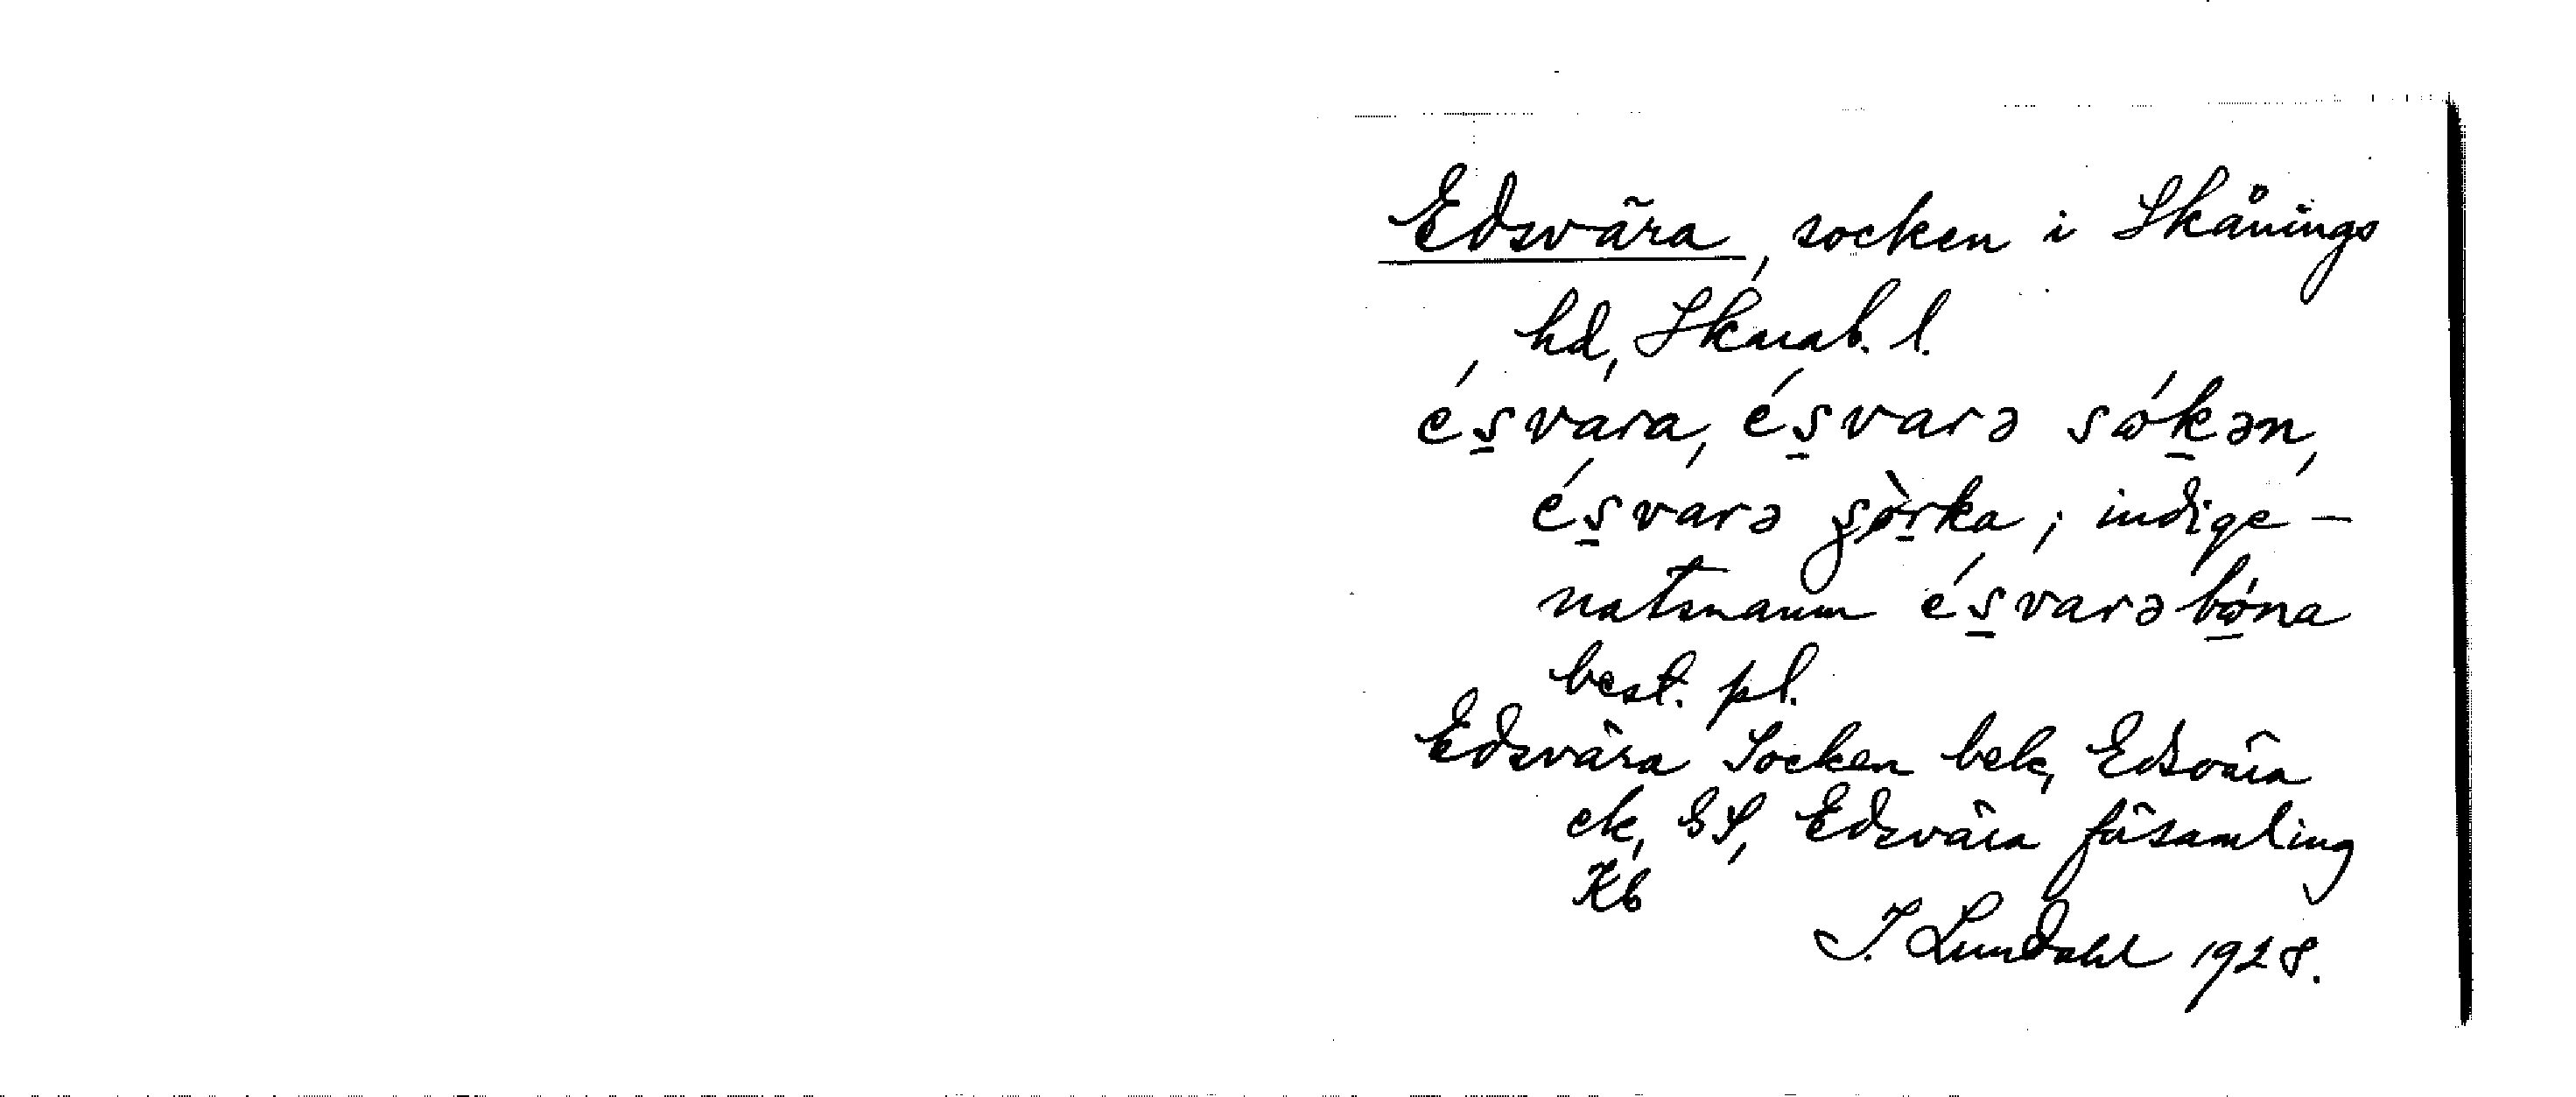 Edsvära, socken i Skånings
hd, Skarab. l.
e̍s̠vara, e̍s̠varə sɷ́k̠ən,
e̍s̠varə ʂò̠rka; indige-
natsnamn e̍s̠varəbɷ̠́na
best. pl.
Edsvära Socken bek, Edsvära
ek, GS, Edsvära församling
Kb
I. Lundahl 1928.